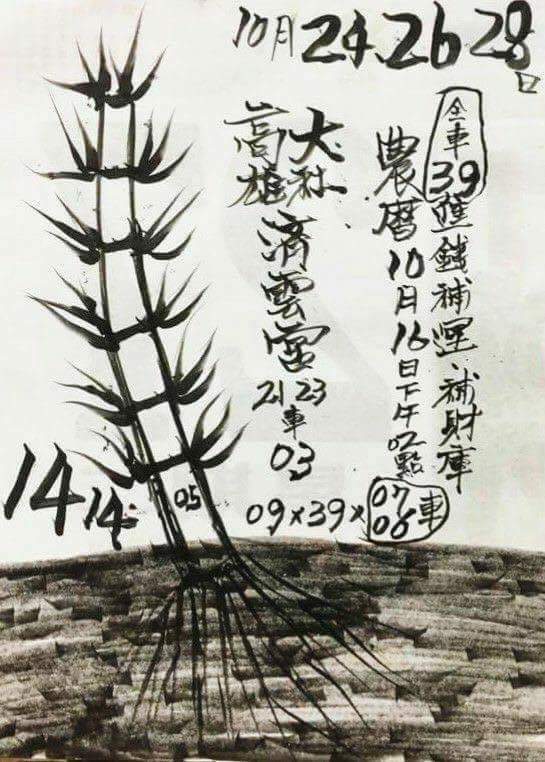 10月24.26 28日
全車39進錢補運、補財庫
農曆10月16日下午02點
大社
高雄
濟雲宮
21 23
車
03
09×39×07 08車
14
14
05